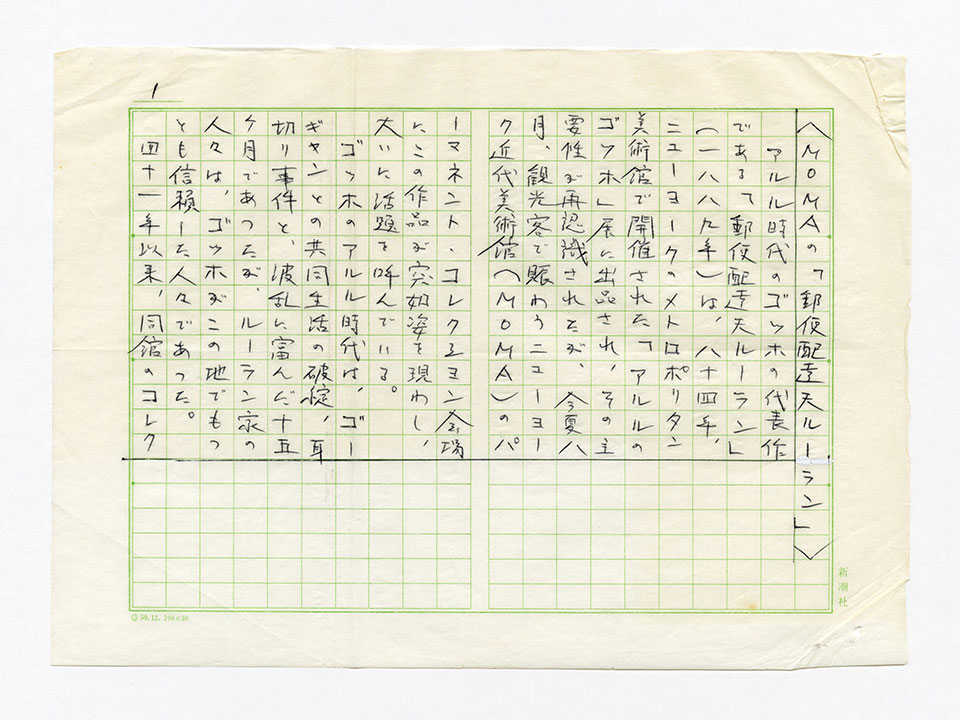 1
〈MOMAの「郵便配達夫ルーラン」〉
アルル時代のゴッホの代表作
である「郵便配達夫ルーラン」
(一八八九年)は、八十四年、
ニューヨークのメトロポリタン
美術館で開催された「アルルの
ゴッホ」展に出品され、その主
要性が再認識されたが、今夏八
月、観光客で賑わうニューヨー
ク近代美術館(MOMA)のパ
ーマネント・コレクション会場
にこの作品が突如姿を現わし、
大いに話題を呼んでいる。
ゴッホのアルル時代は、ゴー
ギャンとの共同生活の破綻、耳
切り事件と、波乱に富んだ十五
ヶ月であったが、ルーラン家の
人々は、ゴッホがこの地でもっ
とも信頼した人々であった。
四十一年以来、同館のコレク
新潮社
© 59.12.